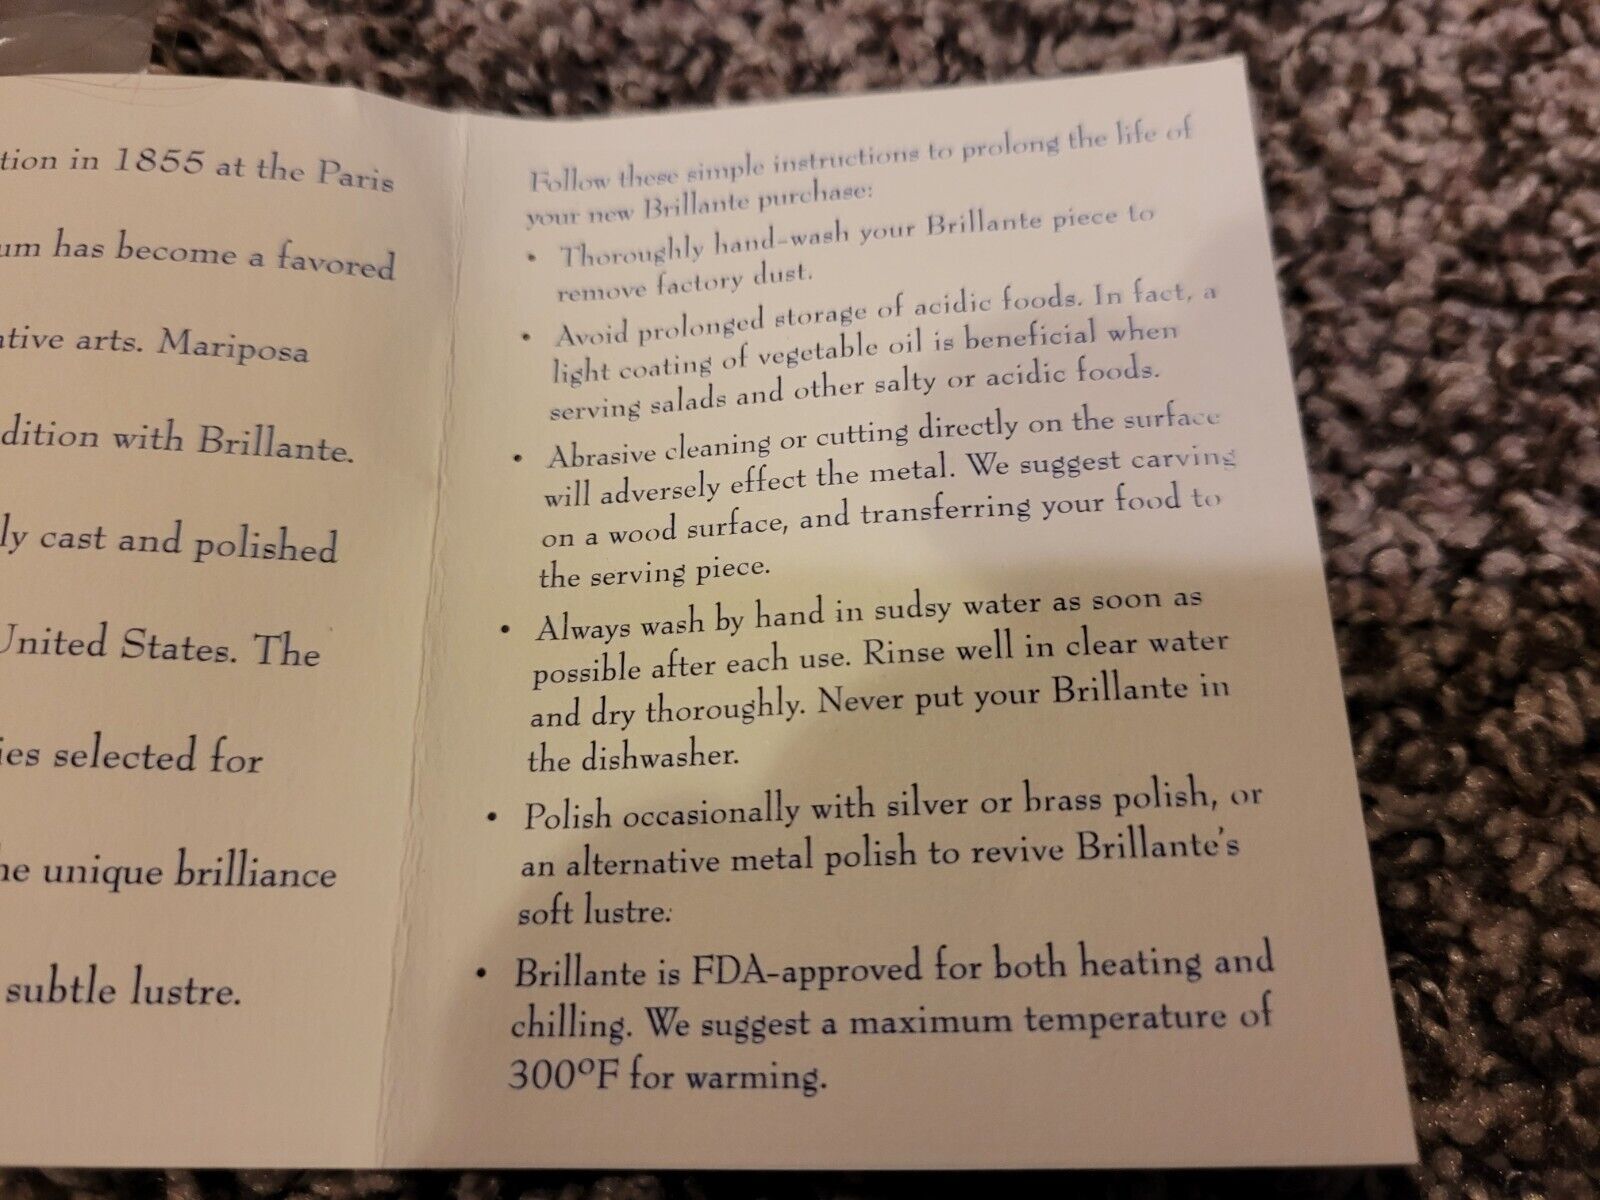 tion in 1855 at the Paris
um has become a favored
ative arts. Mariposa
dition with Brillante.
ly cast and polished
United States. The
ies selected for
he unique brilliance
subtle lustre.
Follow these simple instructions to prolong the life of
your new Brillante purchase:
• Thoroughly hand-wash your Brillante piece to
remove factory dust.
• Avoid prolonged storage of acidic foods. In fact, a
light coating of vegetable oil is beneficial when
serving salads and other salty or acidic foods.
• Abrasive cleaning or cutting directly on the surface
will adversely effect the metal. We suggest carving
on a wood surface, and transferring your food to
the serving piece.
• Always wash by hand in sudsy water as soon as
possible after each use. Rinse well in clear water
and dry thoroughly. Never put your Brillante in
the dishwasher.
• Polish occasionally with silver or brass polish, or
an alternative metal polish to revive Brillante's
soft lustre.
• Brillante is FDA-approved for both heating and
chilling. We suggest a maximum temperature of
300ºF for warming.